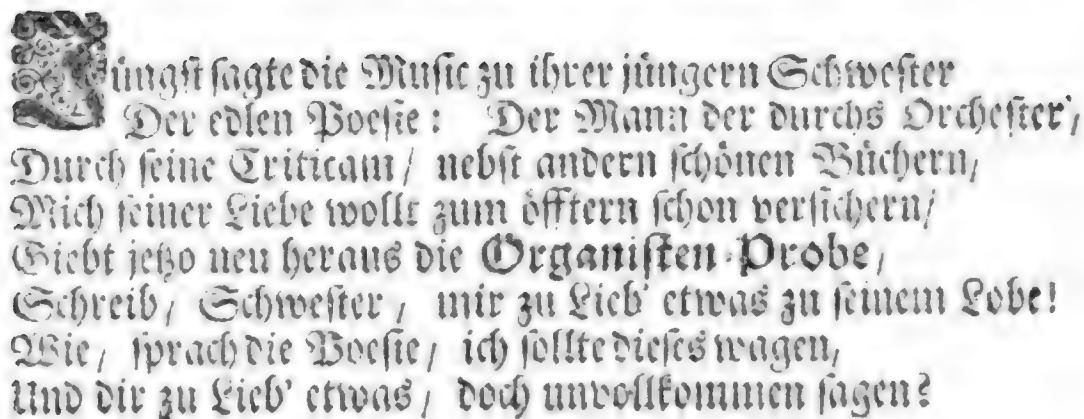 Jüngst sagte die Music zu ihrer jüngern Schwester
Der edlen Poesie: Der Mann der durchs Orchester,
Durch seine Criticam/ nebst andern schönen Büchern,
Mich seiner Liebe wollt zum öfftern schon versichern/
Giebt jetzo neu heraus die Organisten-Probe,
Schreib, Schwester, mir zu Lieb' etwas zu seinem Lobe!
Wie, sprach die Poesie, ich sollte dieses wagen,
Und dir zu Lieb' etwas, doch unvollkommen sagen?